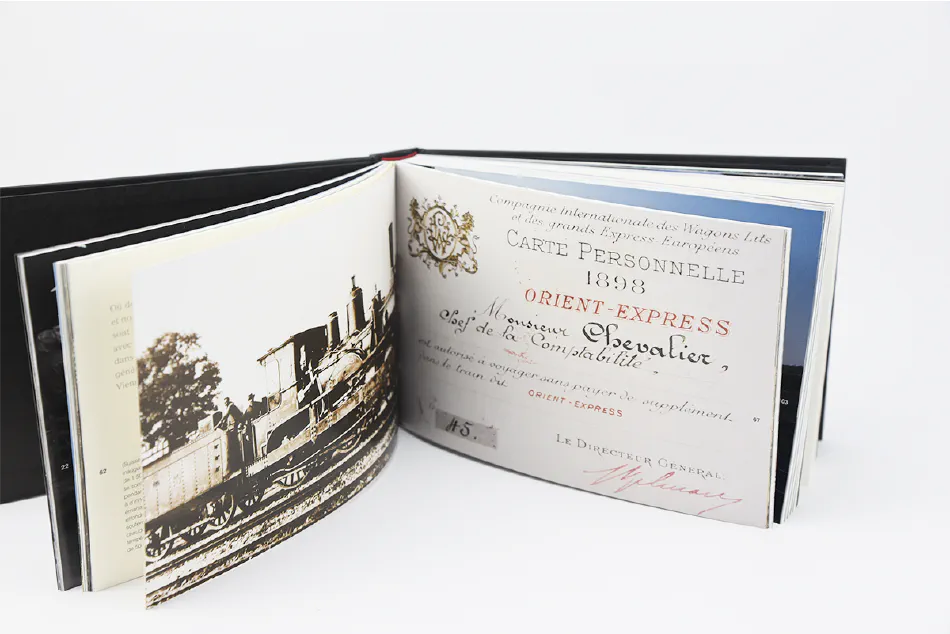 22
62
Compagnie Internationale des Wagons Lits
et des grands Express Européens
CARTE PERSONNELLE
1898
ORIENT-EXPRESS
Monsieur Chevalier,
Chef de la Comptabilité,
est autorisé à voyager sans payer de supplément
dans le train dit
ORIENT-EXPRESS
45.
LE DIRECTEUR GENERAL.
67
63